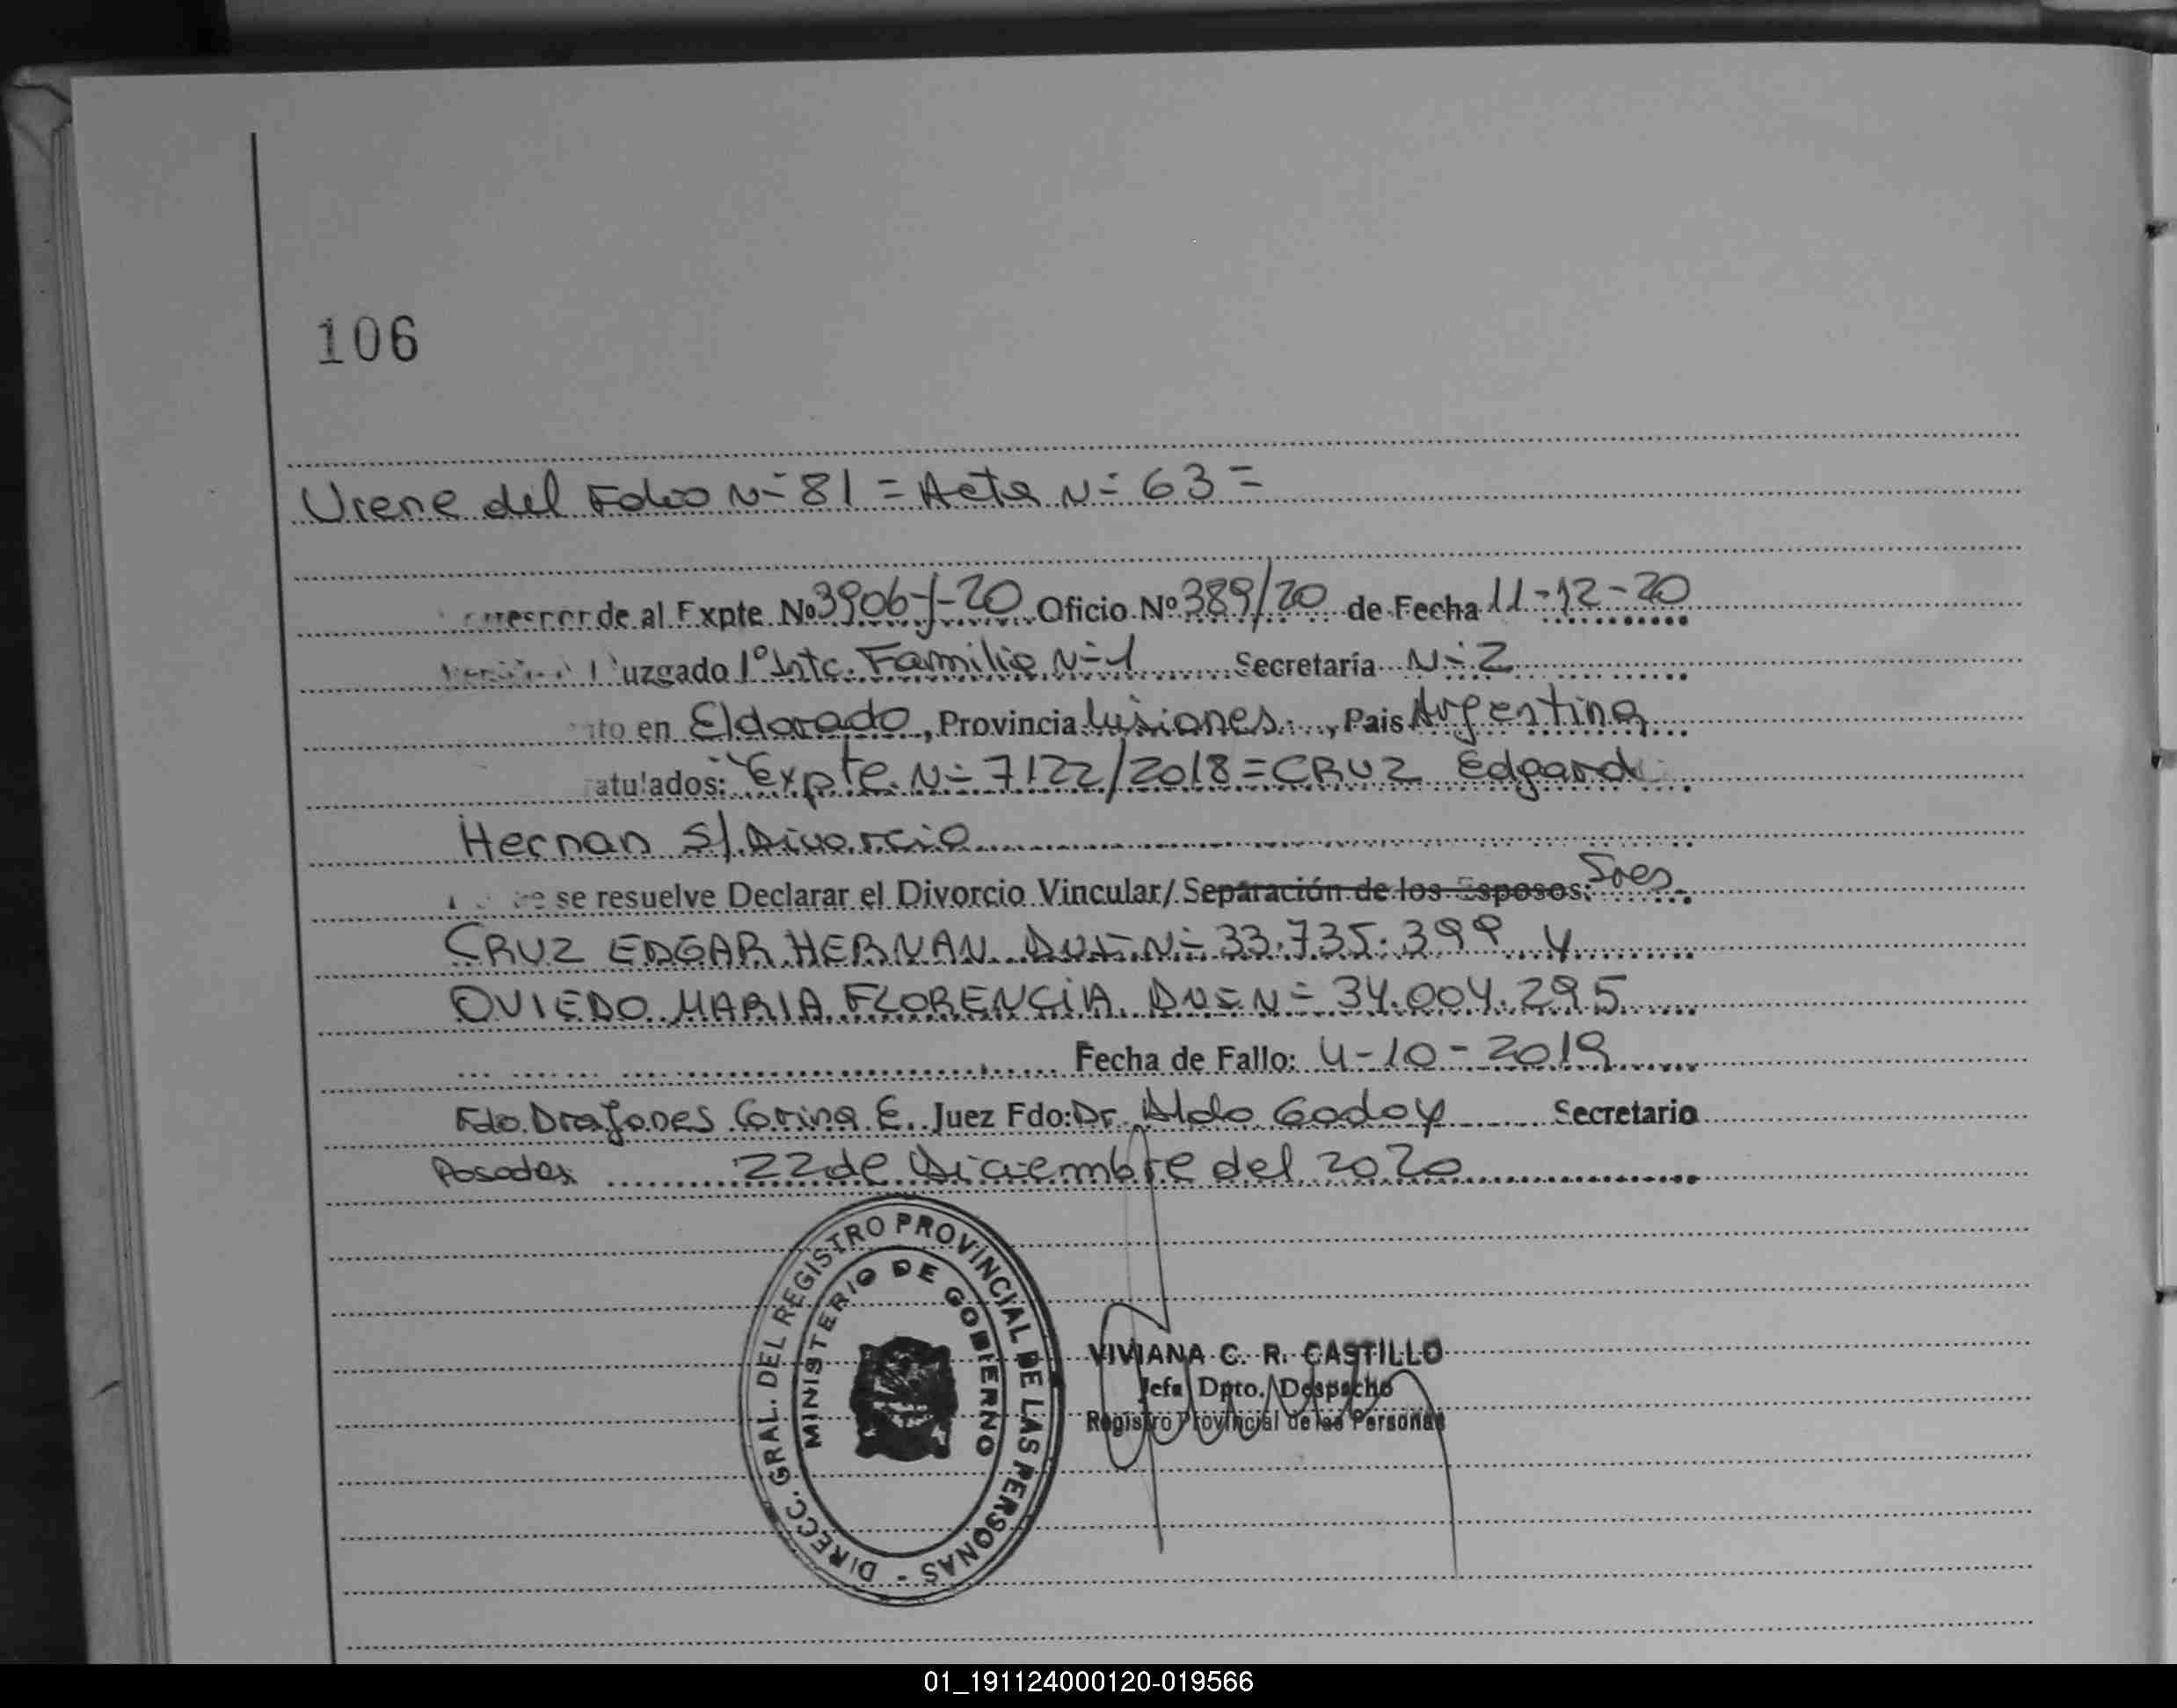 106
Viene del Folio N= 81 = Acta N= 63 =
de al Expte. Nº 3906-J-20 Oficio Nº 389/20 de Fecha 11-12-20
uzgado 1º Intc. Familia N=1 Secretaría N=2
to en Eldorado, Provincia Misiones, Pais Argentina
atulados: "Expte. N= 7122/2018 = CRUZ Edgard
Hernan S/ Divorcio
se resuelve Declarar el Divorcio Vincular/ Separación de los Esposos: Sres.
CRUZ EDGAR HERNAN DNI N= 33.735.399 y
OVIEDO MARIA FLORENCIA DNI N= 34.004.295
Fecha de Fallo: 4-10-2019
Fdo. Dra Jones Corina E. Juez Fdo: Dr. Aldo Godoy Secretario
Posadas 22 de Diciembre del 2020
DIRECC. GRAL. DEL REGISTRO PROVINCIAL DE LAS PERSONAS -
MINISTERIO DE GOBIERNO
VIVIANA C. R. CASTILLO
Jefa Dpto. Despacho
Registro Provincial de las Personas
01_191124000120-019566